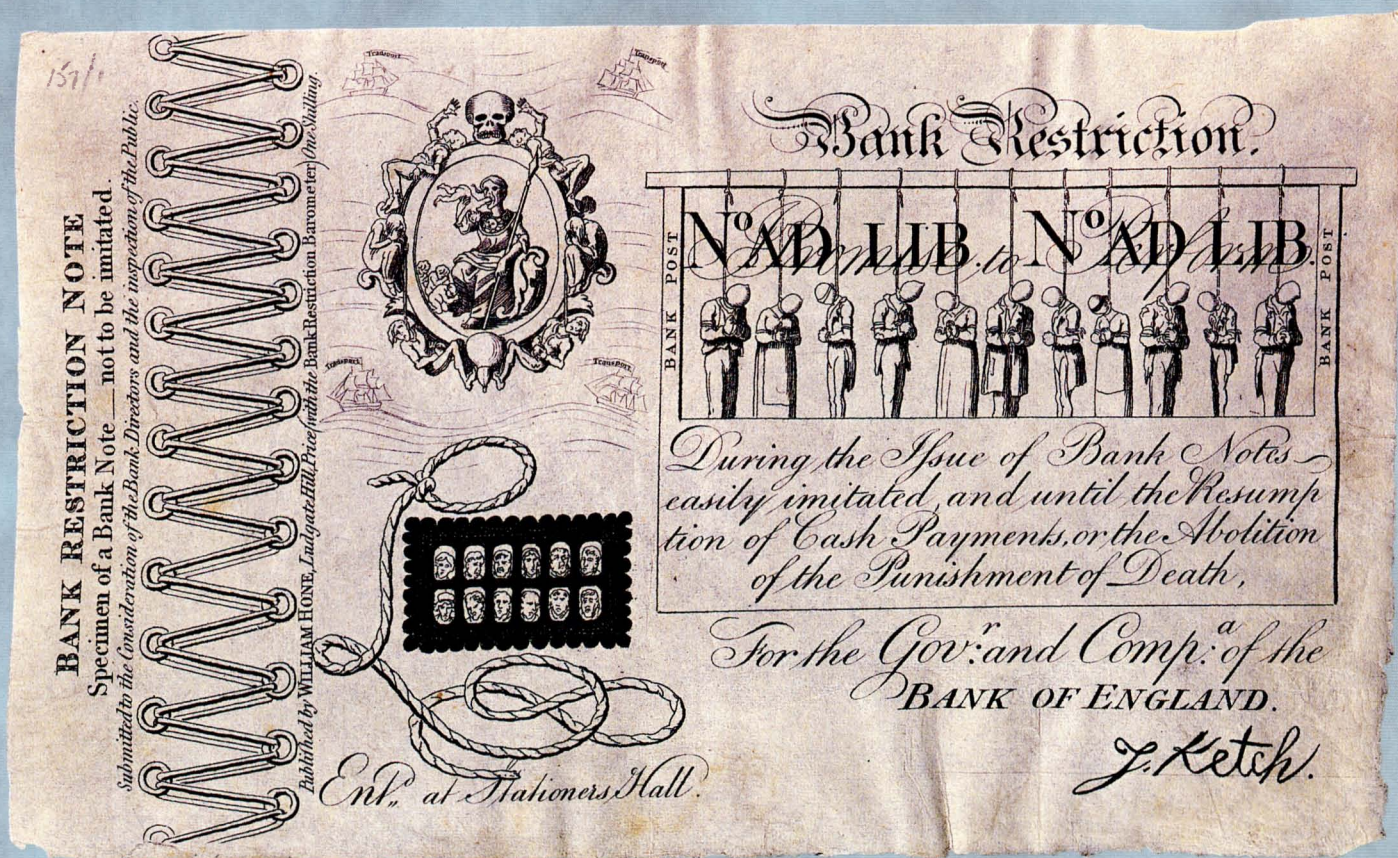 157/1
BANK RESTRICTION NOTE
Specimen of a Bank Note not to be imitated.
Submitted to the Consideration of the Bank Directors and the inspection of the Public.
Published by WILLIAM HONE, Ludgate Hill, Price (with the Bank Restriction Barometer) One Shilling.
Transport
Transport
Transport
Transport
Bank Restriction.
BANK POST
No AD LIB. No AD LIB.
Promise to Perform
BANK POST
During the Issue of Bank Notes
easily imitated, and until the Resump
tion of Cash Payments, or the Abolition
of the Punishment of Death,
For the Govr. and Compa. of the
BANK OF ENGLAND.
J. Ketch.
Entd. at Stationers Hall.